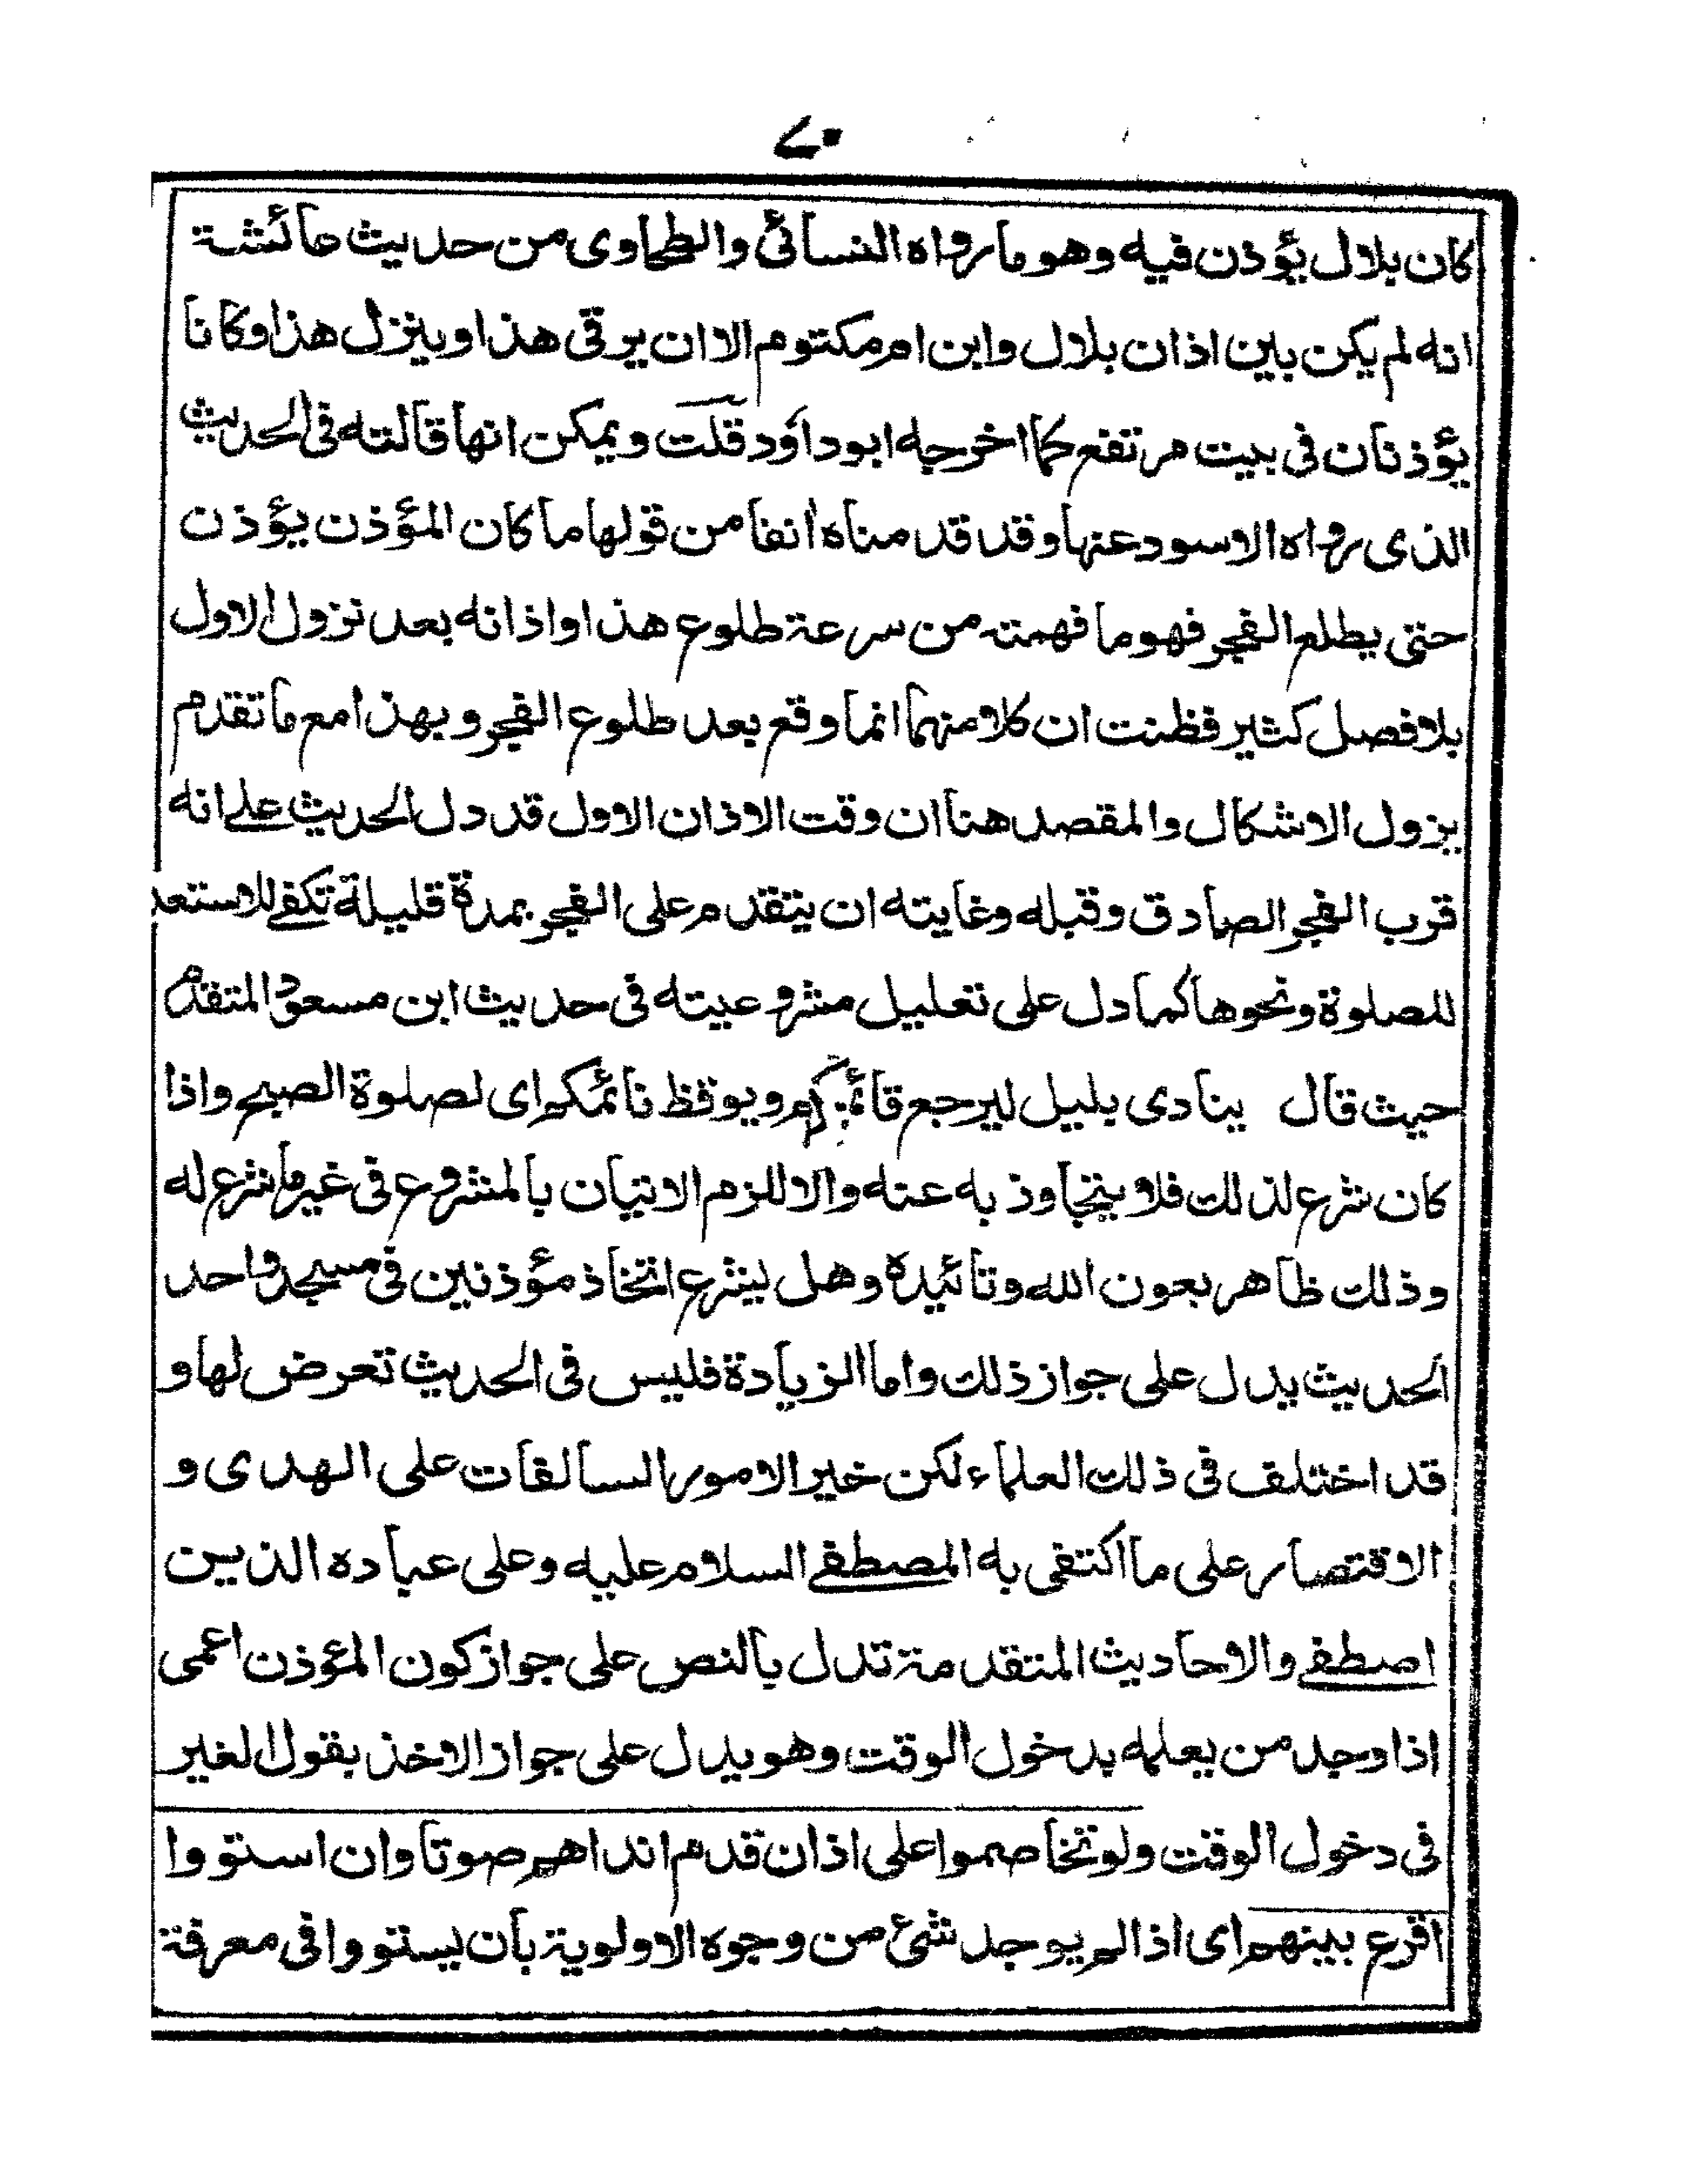 ٧٠
كان بلال يؤذن فيه وهو ما رواه النسائى والطحاوى من حديث عائشة
انه لم يكن بين اذان بلال وابن ام مكتوم الا ان يرقى هذا وينزل هذا وكانا
يؤذنان فى بيت مرتفع كما اخرجه ابوداؤد قلت ويمكن انها قالته فى الحديث
الذى رواه الاسود عنها وقد قدمناه انفا من قولها ما كان المؤذن يؤذن
حتى يطلع الفجر فهو ما فهمته من سرعة طلوع هذا واذانه بعد نزول الاول
بلا فصل كثير فظنت ان كلا منهما انما وقع بعد طلوع الفجر وبهذا مع ما تقدم
يزول الاشكال والمقصد هنا ان وقت الاذان الاول قد دل الحديث على انه
قرب الفجر الصادق وقبله وغايته ان يتقدم على الفجر بمدة قليلة تكفى للاستعد
للصلوة ونحوها كما دل على تعليل مشروعيته فى حديث ابن مسعود المتقدم
حيث قال ينادى بليل ليرجع قائمكم ويوقظ نائمكم اى لصلوة الصبح واذا
كان شرع لذلك فلا يتجاوز به عنه والا للزم الاتيان بالمشروع فى غير ما شرع له
وذلك ظاهر بعون الله وتائيده وهل يشرع اتخاذ مؤذنين فى مسجد واحد
الحديث يدل على جواز ذلك واما الزيادة فليس فى الحديث تعرض لها و
قد اختلف فى ذلك العلماء لكن خير الامور السالفات على الهدى و
الاقتصار على ما اكتفى به المصطفى السلام عليه وعلى عباده الذين
اصطفى والاحاديث المتقدمة تدل بالنص على جواز كون المؤذن اعمى
اذا وجد من يعلمه بدخول الوقت وهو يدل على جواز الاخذ بقول الغير
فى دخول الوقت ولو تخاصموا على اذان قدم انداهم صوتا وان استووا
اقرع بينهم اى اذا لم يوجد شئ من وجوه الاولوية بأن يستووا فى معرفة